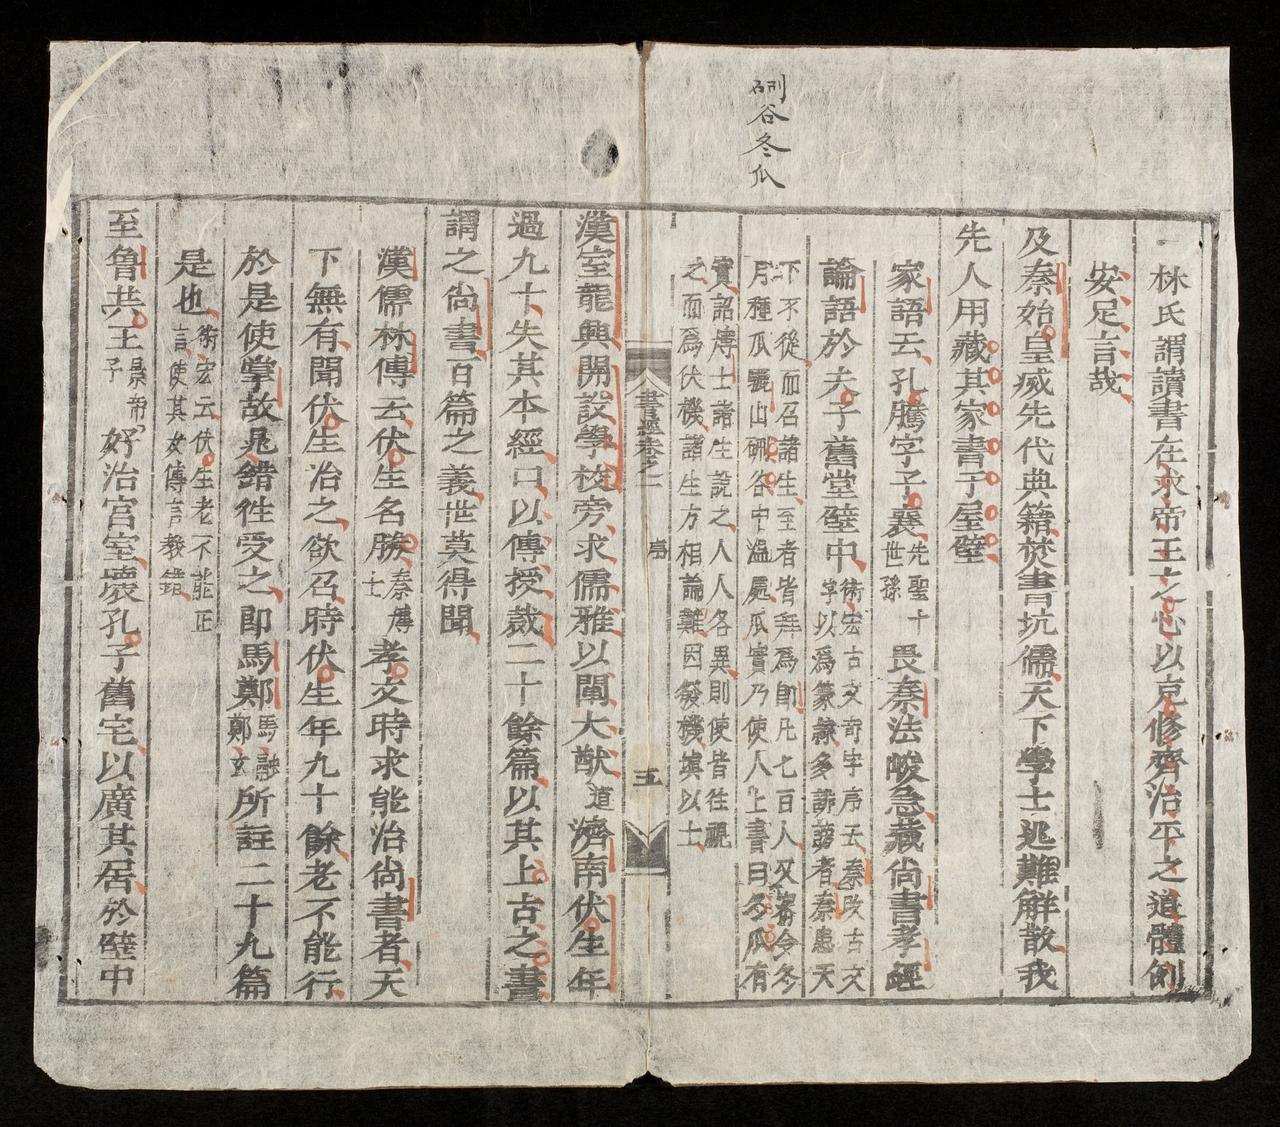 硎谷冬瓜
一林氏謂讀書在求帝王之心以克修齊治平之道體例
安足言哉
及秦始皇滅先代典籍焚書坑儒天下學士逃難解散我
先人用藏其家書于屋壁
家語云孔騰字子襄先聖十世孫畏秦法峻急藏尚書孝經
論語於夫子舊堂壁中衛宏古文奇字序云秦改古文字以爲篆隸多誹謗者秦患天
下不從而召諸生至者皆拜爲郎凡七百人又密令冬
月種瓜驪山硎谷中溫處瓜實乃使人上書曰冬瓜有
實詔博士諸生說之人人各異則使皆往視
之而爲伏機諸生方相論難因發機填以土
書經卷之一 序 五
漢室龍興開設學校旁求儒雅以闡大猷道濟南伏生年
過九十失其本經口以傳授裁二十餘篇以其上古之書
謂之尚書百篇之義世莫得聞
漢儒林傳云伏生名勝秦博士孝文時求能治尚書者天
下無有聞伏生治之欲召時伏生年九十餘老不能行
於是使掌故晁錯往受之即馬鄭馬融鄭玄所註二十九篇
是也衛宏云伏生老不能正言使其女傳言教錯
至魯共王景帝子好治宮室壞孔子舊宅以廣其居於壁中